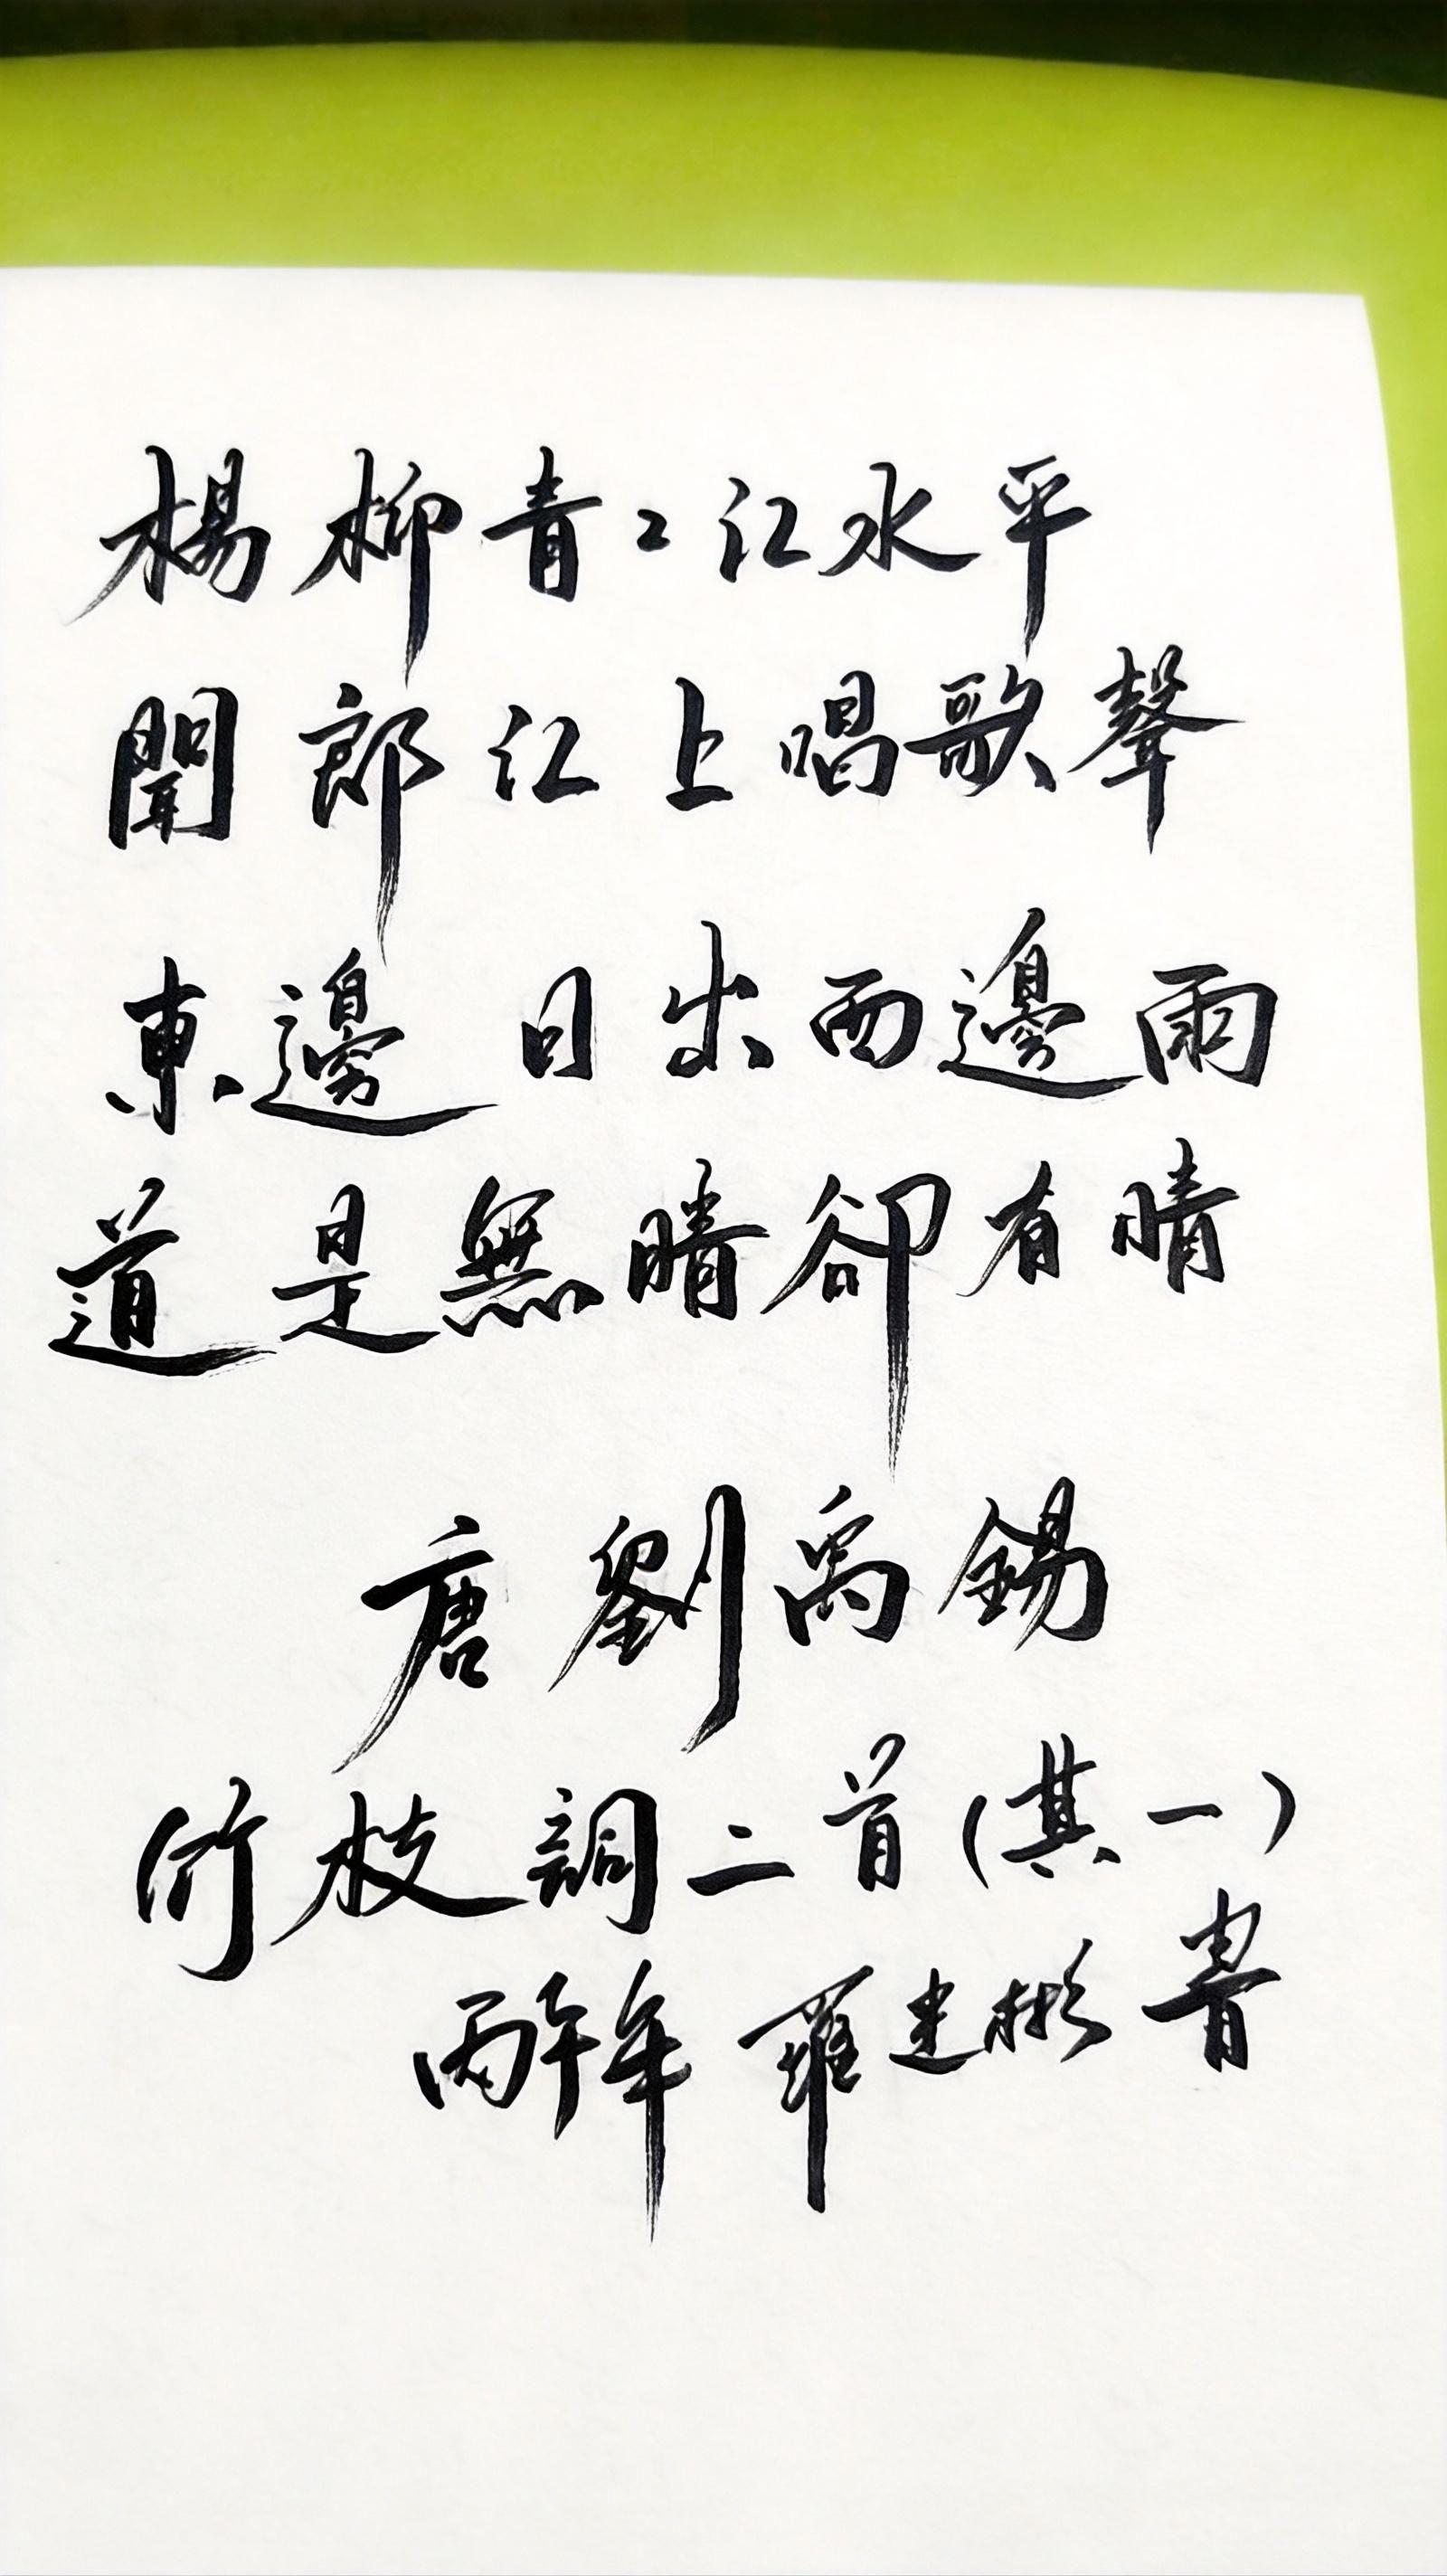 楊柳青〻江水平
聞郎江上唱歌聲
東邊日出西邊雨
道是無晴卻有晴
唐劉禹錫
竹枝詞二首(其一)
丙午年 羅建彬書